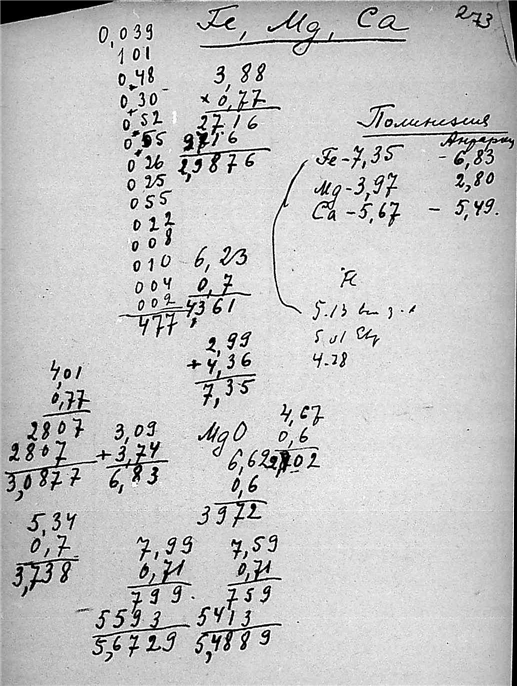 273
Fe, Mg, Ca
0,039
101
0,48
0,30
0,52
0,55
0,26
0 25
0 55
0 22
0 08
0 10
0 04
0 02
4 77
3,88
× 0,77
2716
2716
2,9876
6,23
0,7
4,361
2,99
+ 4,36
7,35
Полинезия
Fe - 7,35 - 6,83
Mg - 3,97 2,80
Ca - 5,67 - 5,49.
Fe
5.13
5.01
4.28
4,01
0,77
2807
2807
3,0877
3,09
+ 3,74
6,83
MgO
6,62
0,6
3972
4,67
0,6
2802
5,34
0,7
3,738
7,99
0,71
799
5593
5,6729
7,59
0,71
759
5413
5,4889